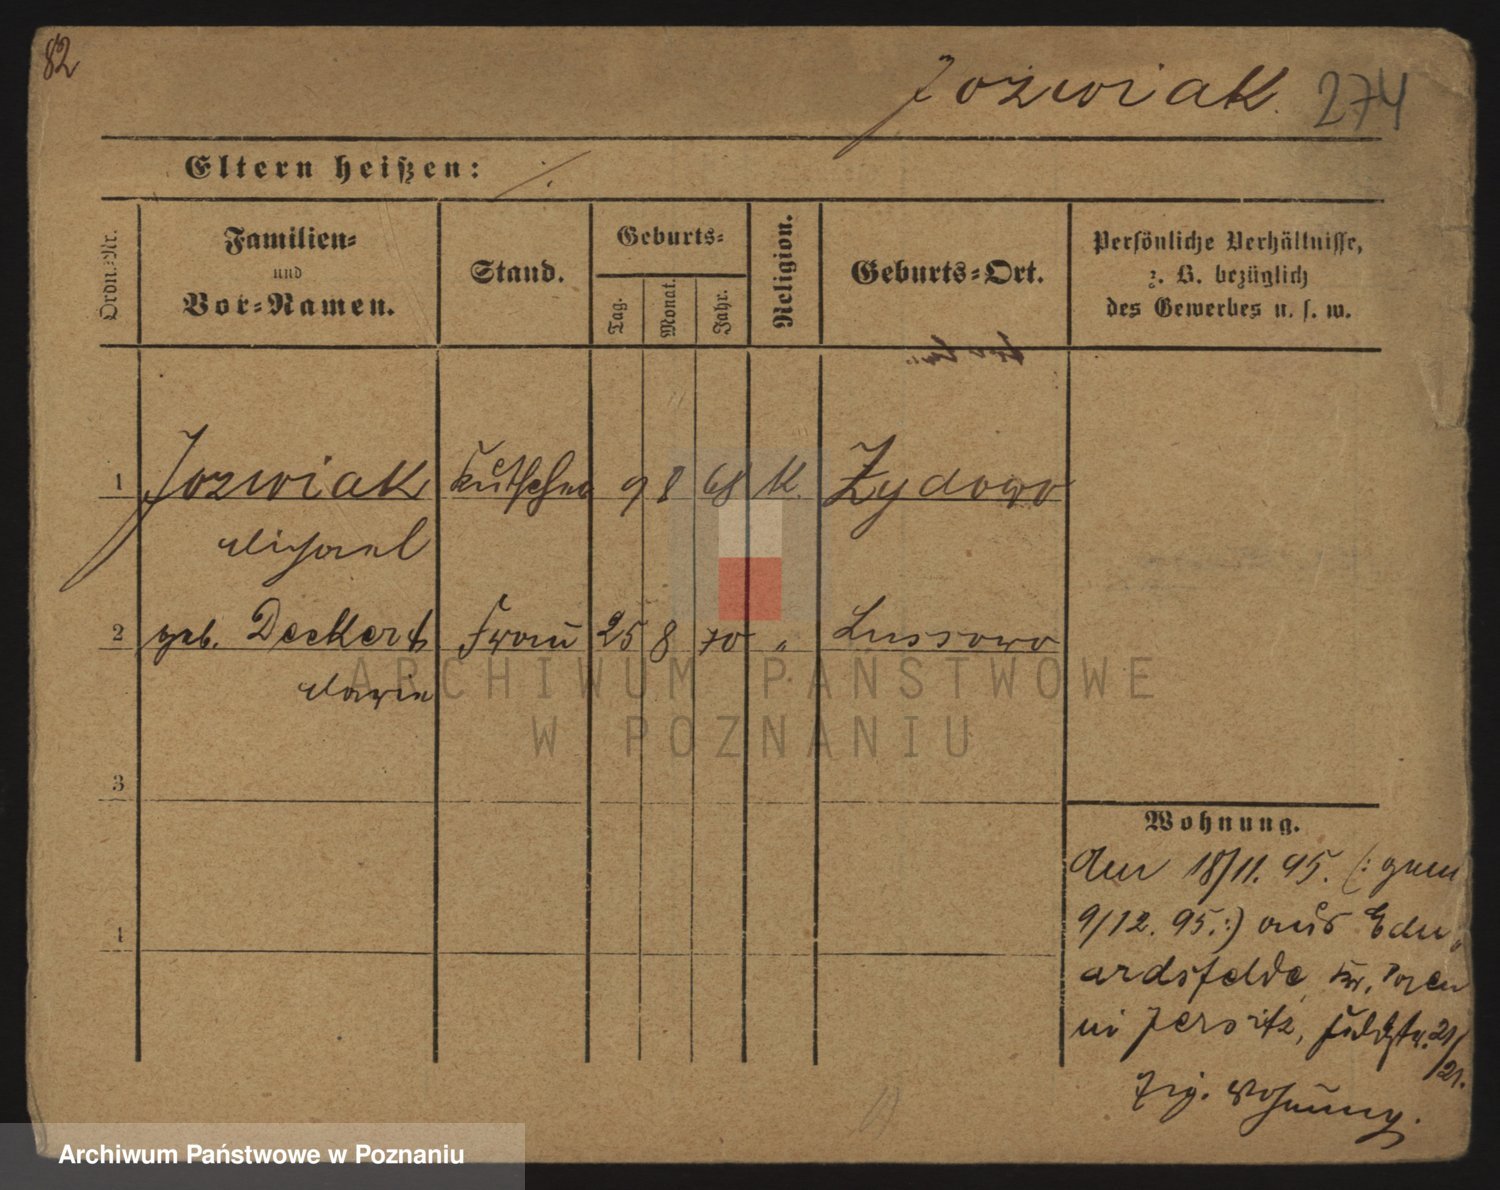 82
Jozwiak. 274
Eltern heißen: ./.
Ordn.-Nr.
Familien-
und
Vor-Namen.
Stand.
Geburts-
Tag.
Monat.
Jahr.
Religion.
Geburts-Ort.
Persönliche Verhältnisse,
z. B. bezüglich
des Gewerbes u. s. w.
1 Jozwiak Kutscher 9 8 68 K. Zydowo
Michael
2 geb. Deckert Frau 25 8 70 " Lussowo
Marie
3
4
Wohnung.
Den 18/11. 95. (: gem
9/12. 95. :) aus Edu-
ardsfelde, Kr. Posen
in Jersitz, 21/
21.
Wohnung.
ARCHIWUM PAŃSTWOWE
W POZNANIU
Archiwum Państwowe w Poznaniu